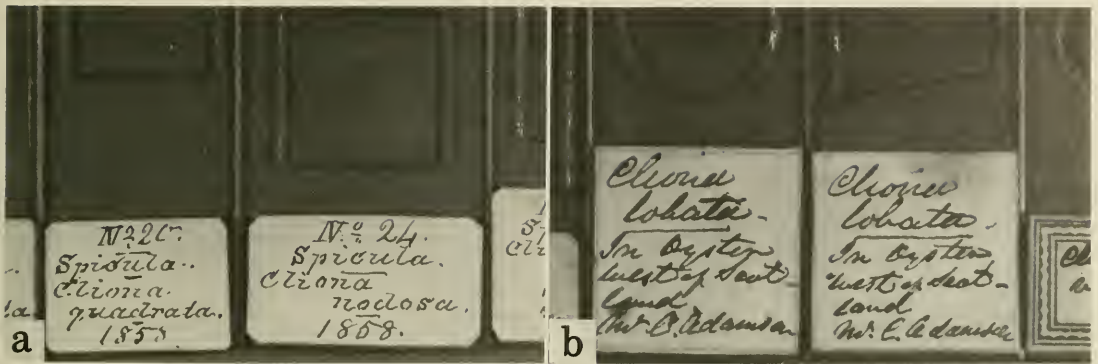 Spicula.
Cliona.
quadrata.
1858.
No 24.
Spicula.
Cliona
nodosa.
1858.
a
Cliona
lobata.
In Oyster
west of Scot-
land
Mr. E. Adamson
Cliona
lobata.
In Oyster
west of Scot-
land
Mr. E. Adamson
b